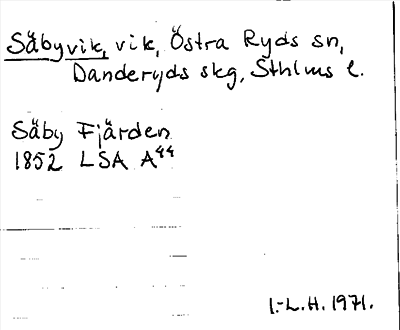 Säbyvik, vik, Östra Ryds sn,
Danderyds skg, Sthlms l.
Säby Fjärden
1852 LSA A44
I.-L.H. 1971.